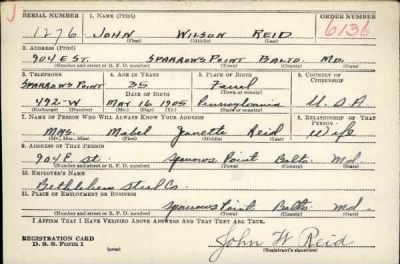 J
SERIAL NUMBER 1. NAME (Print) ORDER NUMBER
1276 JOHN WILSON REID 6136
(First) (Middle) (Last)
2. ADDRESS (Print)
904 E ST. SPARROWS POINT BALTO. MD.
(Number and street or R. F. D. number) (Town) (County) (State)
3. TELEPHONE 4. AGE IN YEARS 5. PLACE OF BIRTH 6. COUNTRY OF CITIZENSHIP
SPARROWS POINT 35
DATE OF BIRTH (Town or county)
492-W MAY 16, 1905 Pennsylvania U.S.A.
(Exchange) (Number) (Mo.) (Day) (Yr.) (State or country)
7. NAME OF PERSON WHO WILL ALWAYS KNOW YOUR ADDRESS 8. RELATIONSHIP OF THAT PERSON
Mrs. Mabel Janette Reid Wife
(Mr., Mrs., Miss) (First) (Middle) (Last)
9. ADDRESS OF THAT PERSON
904 E. St. Sparrows Point Balto. Md.
(Number and street or R. F. D. number) (Town) (County) (State)
10. EMPLOYER'S NAME
Bethlehem Steel Co.
11. PLACE OF EMPLOYMENT OR BUSINESS
Sparrows Point Balto. Md.
(Number and street or R. F. D. number) (Town) (County) (State)
I AFFIRM THAT I HAVE VERIFIED ABOVE ANSWERS AND THAT THEY ARE TRUE.
REGISTRATION CARD
D. S. S. Form 1 (over) John W Reid
(Registrant's signature)